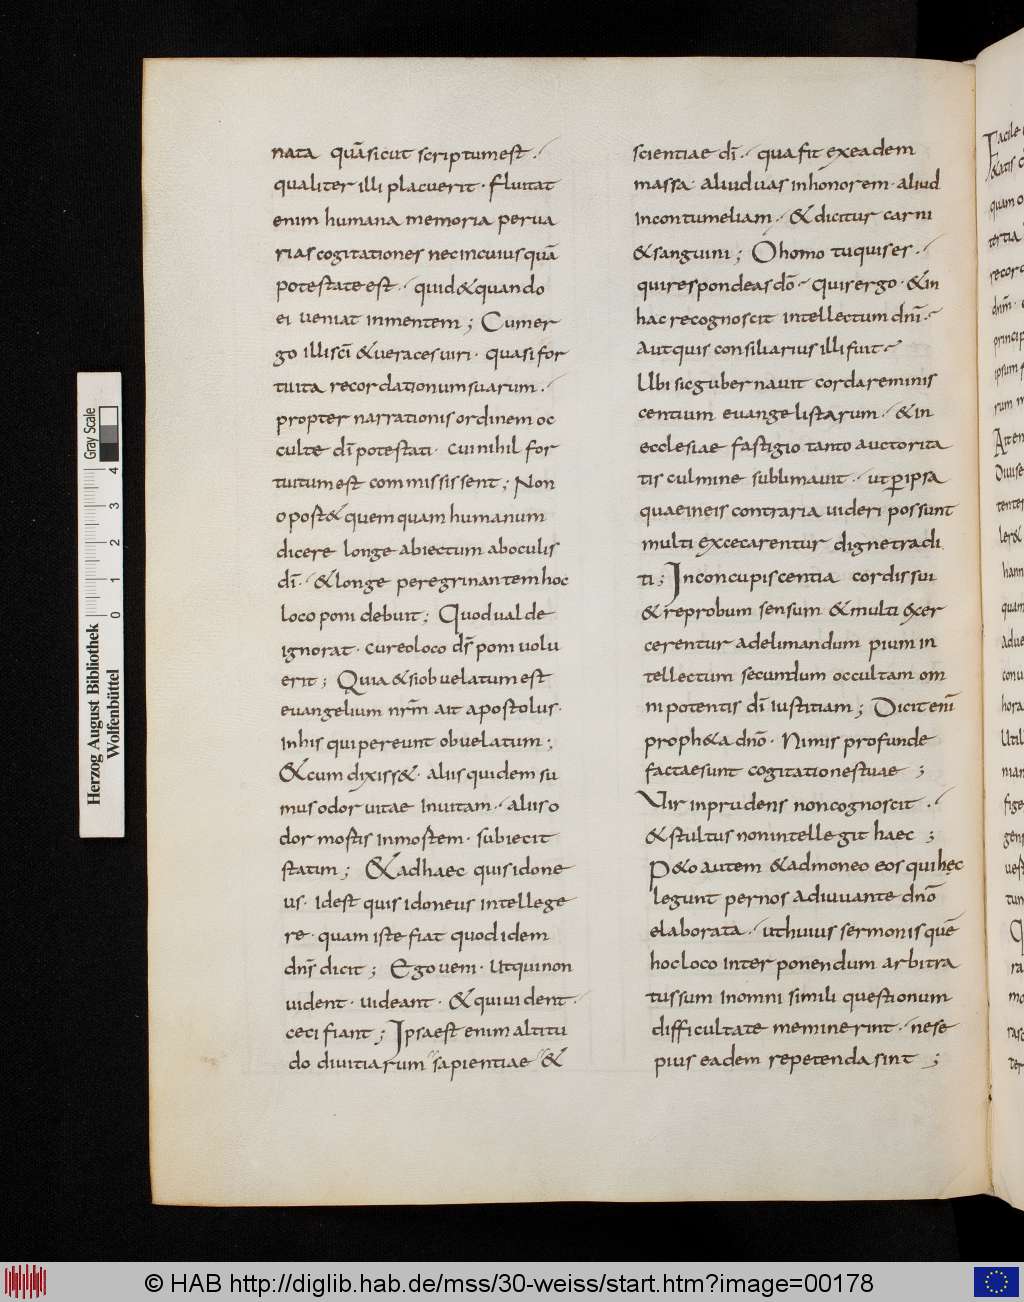 nata quãsicut scriptumest.
qualiter illi placuerit· fluitat
enim humana memoria perua
rias cogitationes necincuiusquã
potestate est. quid&quando
ei ueniat inmentem; Cumer
go illisci̅ &ueraces uiri· quasi for
tuita recordationum suarum.
propter narrationis ordinem oc
culte di̅ potestati· cui nihil for
tuitum est commissi ssent; Non
opost& quemquam humanum
dicere longe abiectum aboculis
di̅· &longe peregrinantem hoc
loco poni debuit; Quod ual de
ignorat· cur eoloco ds̅ poni uolu
erit; Quia &siobuelatum est
euangelium nrm̅ ait apostolus·
Inhis qui pereunt obuelatum;
&cum dixiss&· aliis quidem su
mus odor uitae Inuitam· aliis o
dor mostis Inmostem· subiecit
statim; &adhaec quis idone
us· Idest quis idoneus intellege
re· quam iste fiat quod idem
dns̅ dicit; Ego ueni· Utqui non
uident· uideant· &qui uident
ceci fiant; Ipsa est enim altitu
do diuitiarum sapientiae &
scientiae di̅· qua fit exeadem
massa· aliud uas inhonorem· aliud
Incontumeliam· &dicitur carni
&sanguini; O homo tu quis es·
qui respondeas do̅· Quis ergo· &in
hac recognoscit intellectum dni̅·
Aut quis consiliarius illi fuit·
Ubi sic gubernauit corda reminis
centium euangelistarum· &in
ecclesiae fastigio tanto auctorita
tis culmine sublimauit· ut ꝑ ipsa
quae in eis contraria uideri possunt
multi excecarentur digne tradi
ti; Inconcupiscentia cordis sui
&reprobum sensum &multi exer
cerentur adelimandum pium in
tellectum secundum occultam om
nipotentis di̅ Iustitiam; Dicit eni̅
proph&a dno̅· Nimis profunde
factae sunt cogitationes tuae ;
Vir inprudens non cognoscit ·
&stultus non intellegit haec ;
P&o autem &admoneo eos qui hęc
legunt per nos adiuuante dno̅
elaborata· ut huius sermonis quẽ
hoc loco Inter ponendum arbitra
tus sum Inomni simili questionum
difficultate meminerint· ne se
pius eadem repetenda sint ;
Herzog August Bibliothek
Wolfenbüttel
0 1 2 3 4
Gray Scale
© HAB http://diglib.hab.de/mss/30-weiss/start.htm?image=00178